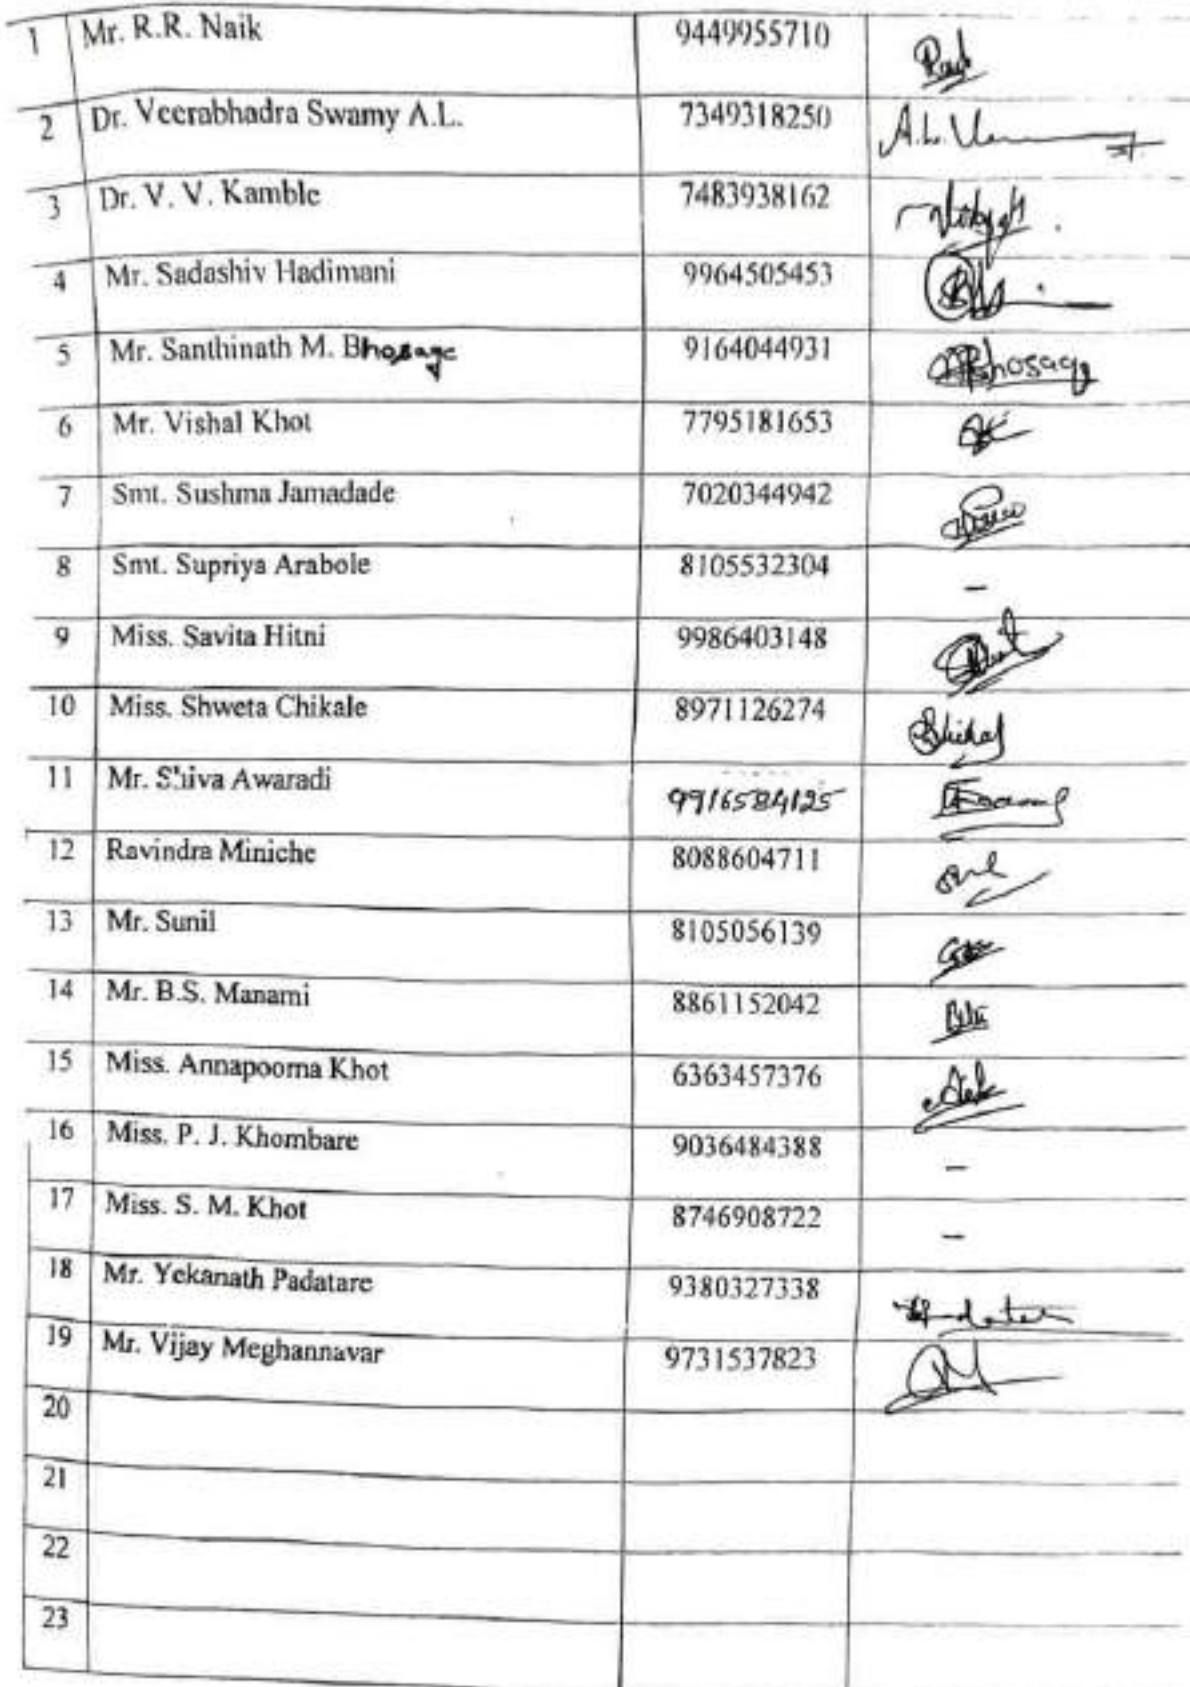 1 Mr. R.R. Naik 9449955710
2 Dr. Veerabhadra Swamy A.L. 7349318250 A.L.
3 Dr. V. V. Kamble 7483938162
4 Mr. Sadashiv Hadimani 9964505453
5 Mr. Santhinath M. Bhosage 9164044931 Bhosage
6 Mr. Vishal Khot 7795181653
7 Smt. Sushma Jamadade 7020344942
8 Smt. Supriya Arabole 8105532304 –
9 Miss. Savita Hitni 9986403148
10 Miss. Shweta Chikale 8971126274
11 Mr. Shiva Awaradi 9916584125
12 Ravindra Miniche 8088604711
13 Mr. Sunil 8105056139
14 Mr. B.S. Manami 8861152042
15 Miss. Annapoorna Khot 6363457376
16 Miss. P. J. Khombare 9036484388 –
17 Miss. S. M. Khot 8746908722 –
18 Mr. Yekanath Padatare 9380327338
19 Mr. Vijay Meghannavar 9731537823
20
21
22
23